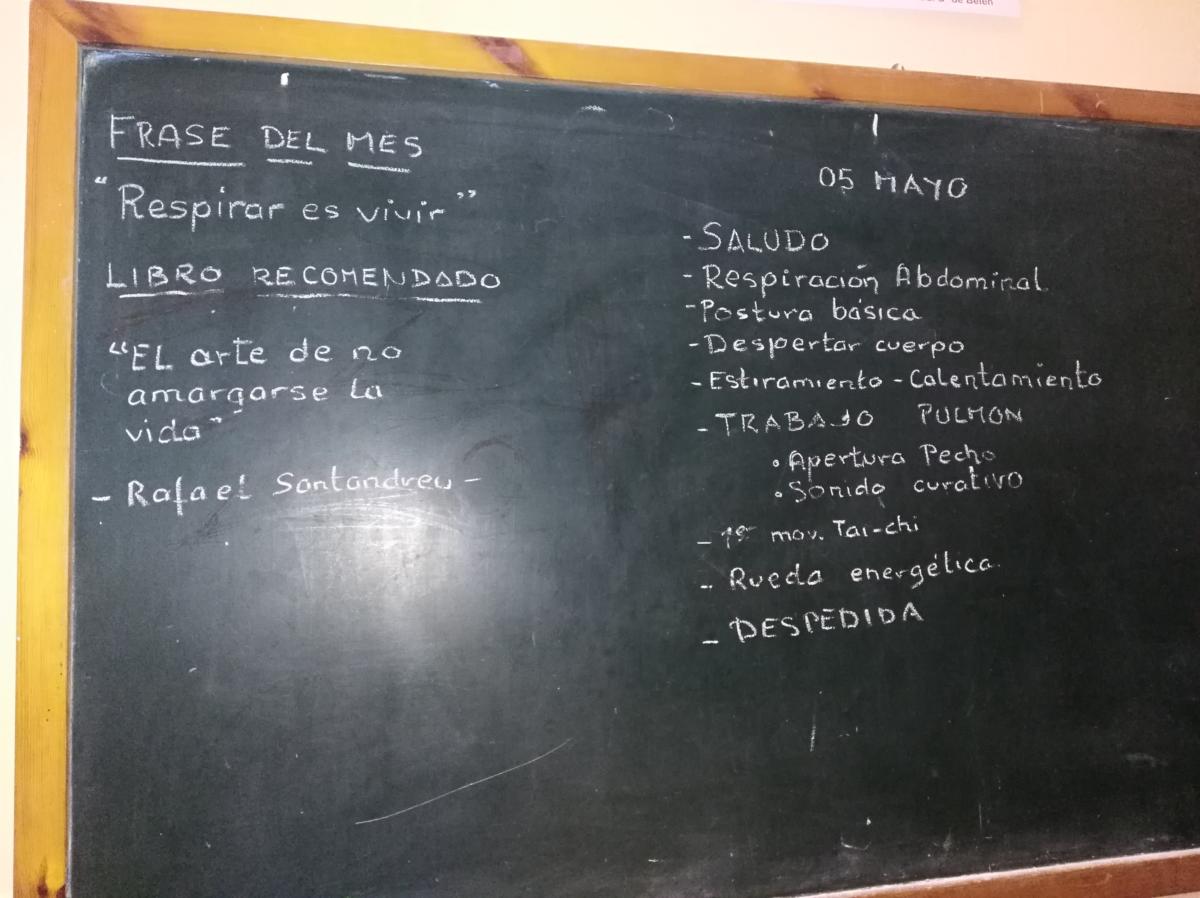 de Belén
FRASE DEL MES
"Respirar es vivir"
LIBRO RECOMENDADO
"EL arte de no
amargarse la
vida"
- Rafael Santandreu -
05 MAYO
- SALUDO
- Respiración Abdominal
- Postura básica
- Despertar cuerpo
- Estiramiento - Calentamiento
- TRABAJO PULMON
• Apertura Pecho
• Sonido curativo
- 1er mov. Tai-chi
- Rueda energética.
- DESPEDIDA